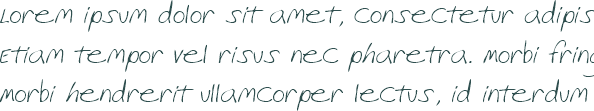 Lorem ipsum dolor sit amet, consectetur adipis
Etiam tempor vel risus nec pharetra. Morbi fring
Morbi hendrerit ullamcorper lectus, id interdum